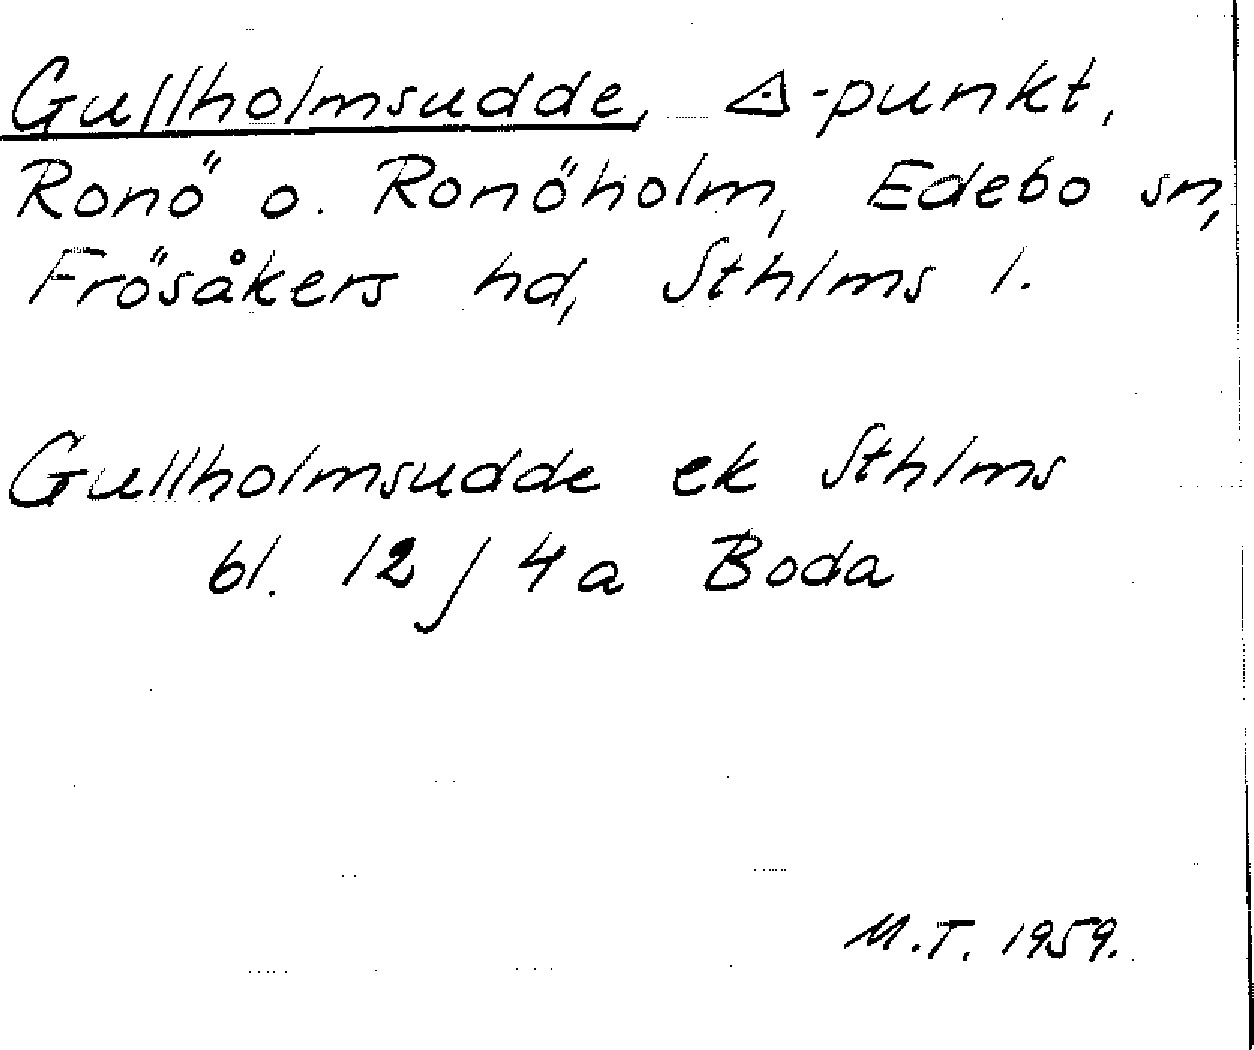 Gullholmsudde, ◬-punkt,
Ronö o. Ronöholm, Edebo sn,
Frösåkers hd, Sthlms l.
Gullholmsudde ek Sthlms
bl. 12 j 4 a Boda
M.T. 1959.